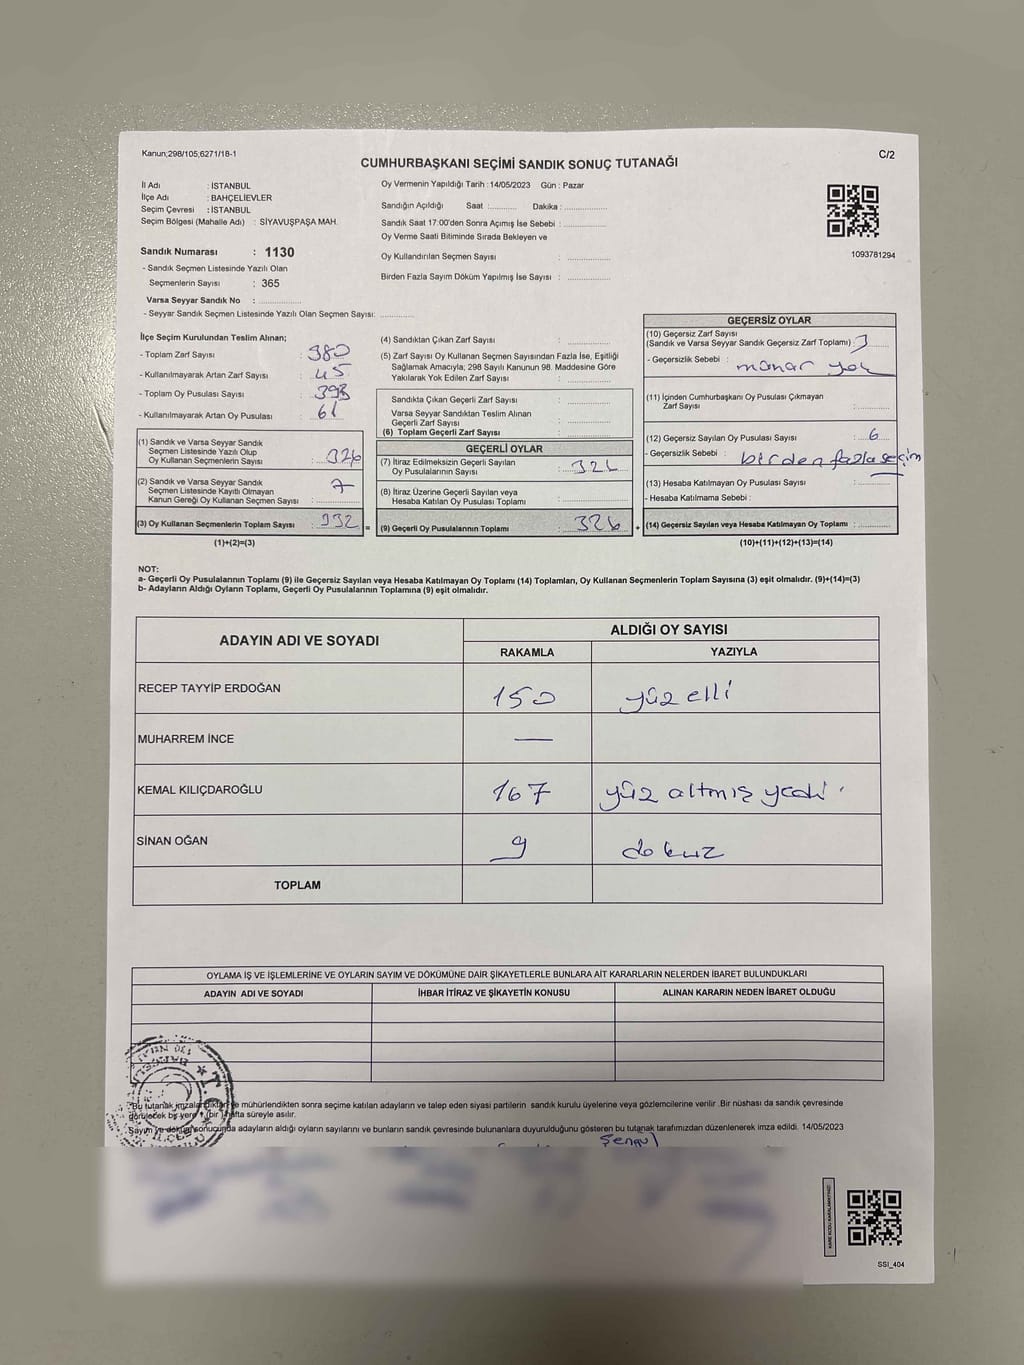 Kanun;298/105,6271/18-1
C/2
CUMHURBAŞKANI SEÇİMİ SANDIK SONUÇ TUTANAĞI
İl Adı : İSTANBUL
İlçe Adı : BAHÇELİEVLER
Seçim Çevresi : İSTANBUL
Seçim Bölgesi (Mahalle Adı) : SİYAVUŞPAŞA MAH.
Sandık Numarası : 1130
- Sandık Seçmen Listesinde Yazılı Olan
Seçmenlerin Sayısı : 365
Varsa Seyyar Sandık No :
- Seyyar Sandık Seçmen Listesinde Yazılı Olan Seçmen Sayısı:
Oy Vermenin Yapıldığı Tarih : 14/05/2023 Gün : Pazar
Sandığın Açıldığı Saat : Dakika :
Sandık Saat 17:00'den Sonra Açımış İse Sebebi :
Oy Verme Saati Bitiminde Sırada Bekleyen ve
Oy Kullandırılan Seçmen Sayısı :
Birden Fazla Sayım Döküm Yapılmış İse Sayısı :
1093781294
İlçe Seçim Kurulundan Teslim Alınan;
- Toplam Zarf Sayısı : 380
- Kullanılmayarak Artan Zarf Sayısı : 45
- Toplam Oy Pusulası Sayısı : 393
- Kullanılmayarak Artan Oy Pusulası : 61
(1) Sandık ve Varsa Seyyar Sandık
Seçmen Listesinde Yazılı Olup
Oy Kullanan Seçmenlerin Sayısı : 326
(2) Sandık ve Varsa Seyyar Sandık
Seçmen Listesinde Kayıtlı Olmayan
Kanun Gereği Oy Kullanan Seçmen Sayısı : 7
(3) Oy Kullanan Seçmenlerin Toplam Sayısı : 332 =
(1)+(2)=(3)
(4) Sandıktan Çıkan Zarf Sayısı :
(5) Zarf Sayısı Oy Kullanan Seçmen Sayısından Fazla İse, Eşitliği
Sağlamak Amacıyla; 298 Sayılı Kanunun 98. Maddesine Göre
Yakılarak Yok Edilen Zarf Sayısı :
Sandıkta Çıkan Geçerli Zarf Sayısı :
Varsa Seyyar Sandıktan Teslim Alınan
Geçerli Zarf Sayısı :
(6) Toplam Geçerli Zarf Sayısı :
GEÇERLİ OYLAR
(7) İtiraz Edilmeksizin Geçerli Sayılan
Oy Pusulasının Sayısı : 326
(8) İtiraz Üzerine Geçerli Sayılan veya
Hesaba Katılan Oy Pusulası Toplamı :
(9) Geçerli Oy Pusulalarının Toplamı : 326 +
GEÇERSİZ OYLAR
(10) Geçersiz Zarf Sayısı
(Sandık ve Varsa Seyyar Sandık Geçersiz Zarf Toplamı) :
- Geçersizlik Sebebi : yok
(11) İçinden Cumhurbaşkanı Oy Pusulası Çıkmayan
Zarf Sayısı :
(12) Geçersiz Sayılan Oy Pusulası Sayısı : 6
- Geçersizlik Sebebi : birden fazla seçim
(13) Hesaba Katılmayan Oy Pusulası Sayısı :
- Hesaba Katılmama Sebebi :
(14) Geçersiz Sayılan veya Hesaba Katılmayan Oy Toplamı :
(10)+(11)+(12)+(13)=(14)
NOT:
a- Geçerli Oy Pusulalarının Toplamı (9) ile Geçersiz Sayılan veya Hesaba Katılmayan Oy Toplamı (14) Toplamları, Oy Kullanan Seçmenlerin Toplam Sayısına (3) eşit olmalıdır. (9)+(14)=(3)
b- Adayların Aldığı Oyların Toplamı, Geçerli Oy Pusulalarının Toplamına (9) eşit olmalıdır.
ADAYIN ADI VE SOYADI
ALDIĞI OY SAYISI
RAKAMLA YAZIYLA
RECEP TAYYİP ERDOĞAN 150 yüz elli
MUHARREM İNCE —
KEMAL KILIÇDAROĞLU 167 yüz altmış yedi
SİNAN OĞAN 9 dokuz
TOPLAM
OYLAMA İŞ VE İŞLEMLERİNE VE OYLARIN SAYIM VE DÖKÜMÜNE DAİR ŞİKAYETLERLE BUNLARA AİT KARARLARIN NELERDEN İBARET BULUNDUKLARI
ADAYIN ADI VE SOYADI İHBAR İTİRAZ VE ŞİKAYETİN KONUSU ALINAN KARARIN NEDEN İBARET OLDUĞU
T.C.
"Bu tutanak imzalandıktan ve mühürlendikten sonra seçime katılan adayların ve talep eden siyasi partilerin sandık kurulu üyelerine veya gözlemcilerine verilir. Bir nüshası da sandık çevresinde
görülecek bir yere 1 (bir) hafta süreyle asılır.
Sayım ve döküm sonucunda adayların aldığı oyların sayılarını ve bunların sandık çevresinde bulunanlara duyurulduğunu gösteren bu tutanak tarafımızdan düzenlenerek imza edildi. 14/05/2023
Şengül
KARE KODU KARALAMAYINIZ!
SSI_404